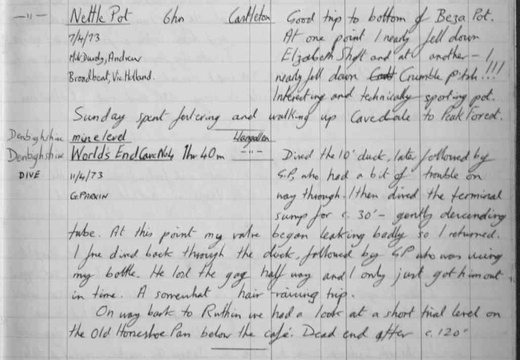 —"— Nettle Pot 6hr Castleton Good trip to bottom of Beza Pot.
7/4/73 At one point I nearly fell down
McDurdy, Andrew Elizabeth Shaft and at another — I
Broadbent, Vic Holland. nearly fell down Crumble pitch!!!
Interesting and technically sporting pot.
Sunday spent fostering and walking up Cavedale to Peak Forest.
Denbighshire mine level Llangollen
Denbighshire World's End Cave No4 1hr 40m —"— Dived the 10' duck, later followed by
DIVE 11/4/73 G.P. who had a bit of trouble on
G PARKIN way through. I then dived the terminal
sump for c. 30' – gently descending
tube. At this point my valve began leaking badly so I returned.
I free dived back through the duck, followed by GP who was using
my bottle. He lost the gag half way and I only just got him out
in time. A somewhat hair raising trip.
On way back to Ruthin we had a look at a short trial level on
the Old Horseshoe Pass below the café. Dead end after c. 120'